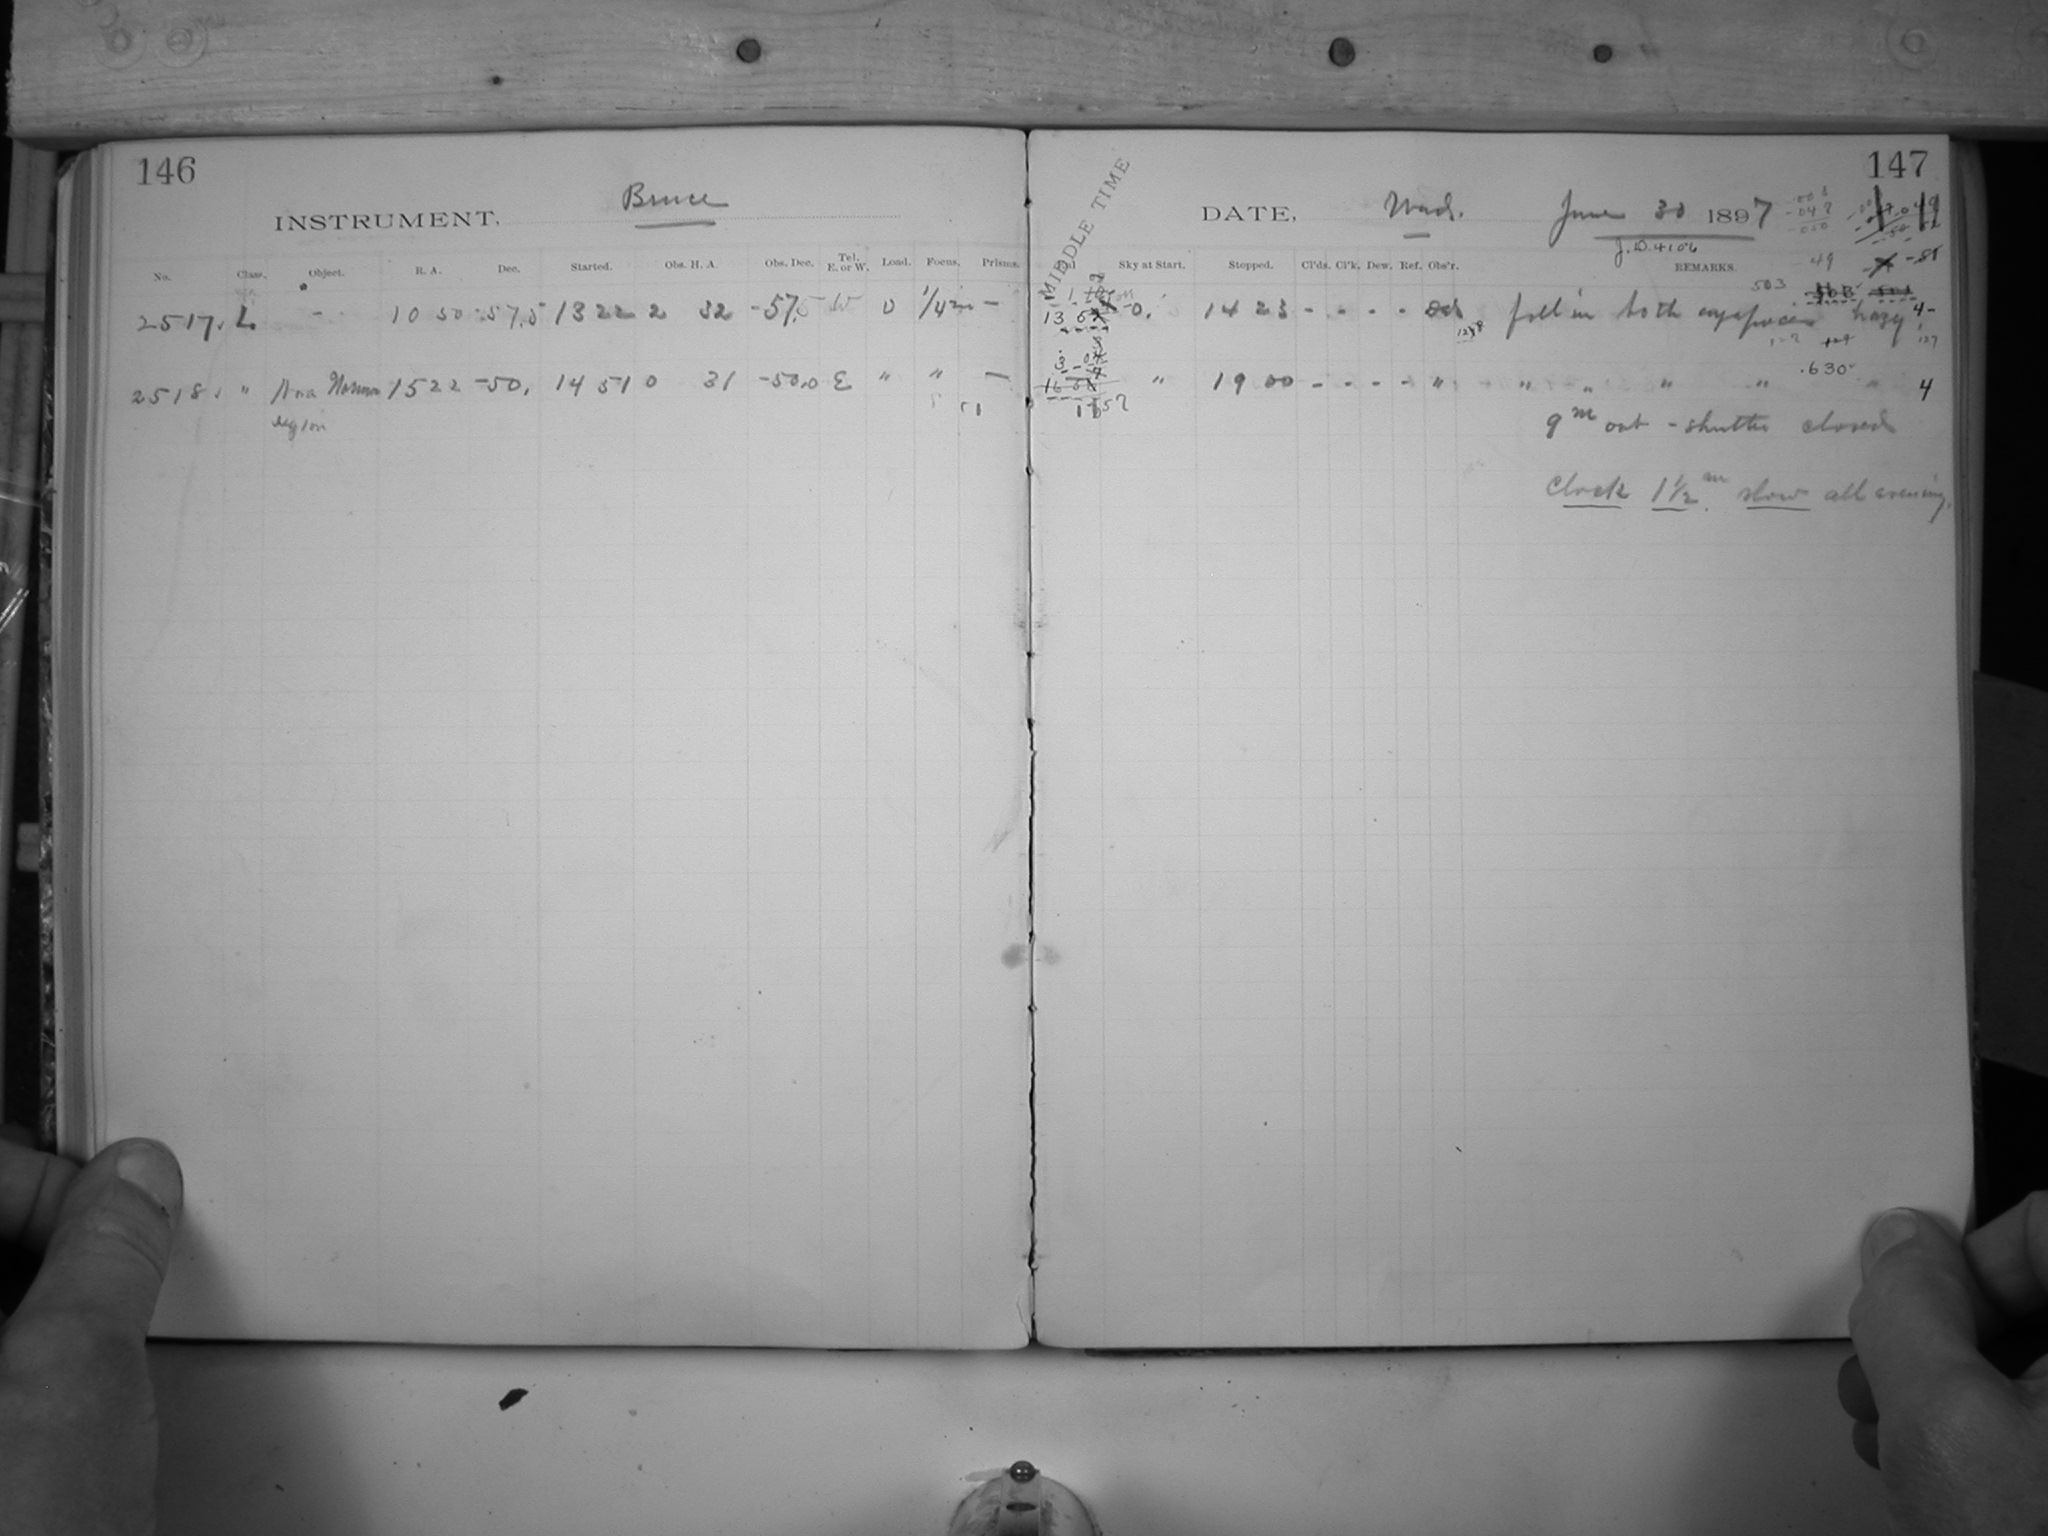 146
INSTRUMENT, Bruce
No. Class. Object. R. A. Dec. Started. Obs. H. A. Obs. Dec. Tel. E. or W. Load. Focus. Prisms.
2517. L - 10 50 -57.5 13 22 2 32 -57.5 W 0 1/42m -
2518. " Nova Normae 15 22 -50. 14 51 0 31 -50.0 E " " -
region
51
147
MIDDLE TIME
DATE, Wed. June 30 1897
J.D. 4106
Sky at Start. Stopped. Cl'ds. Cl'k. Dew. Ref. Obs'r. REMARKS.
503
13 -0. 14 23 - - - - foll'in both eyepieces hazy 4-
127
" 19 00 - - - - " " " " " " 4
.630
9m out - shutter closed
Clock 1 1/2 m slow all evening.